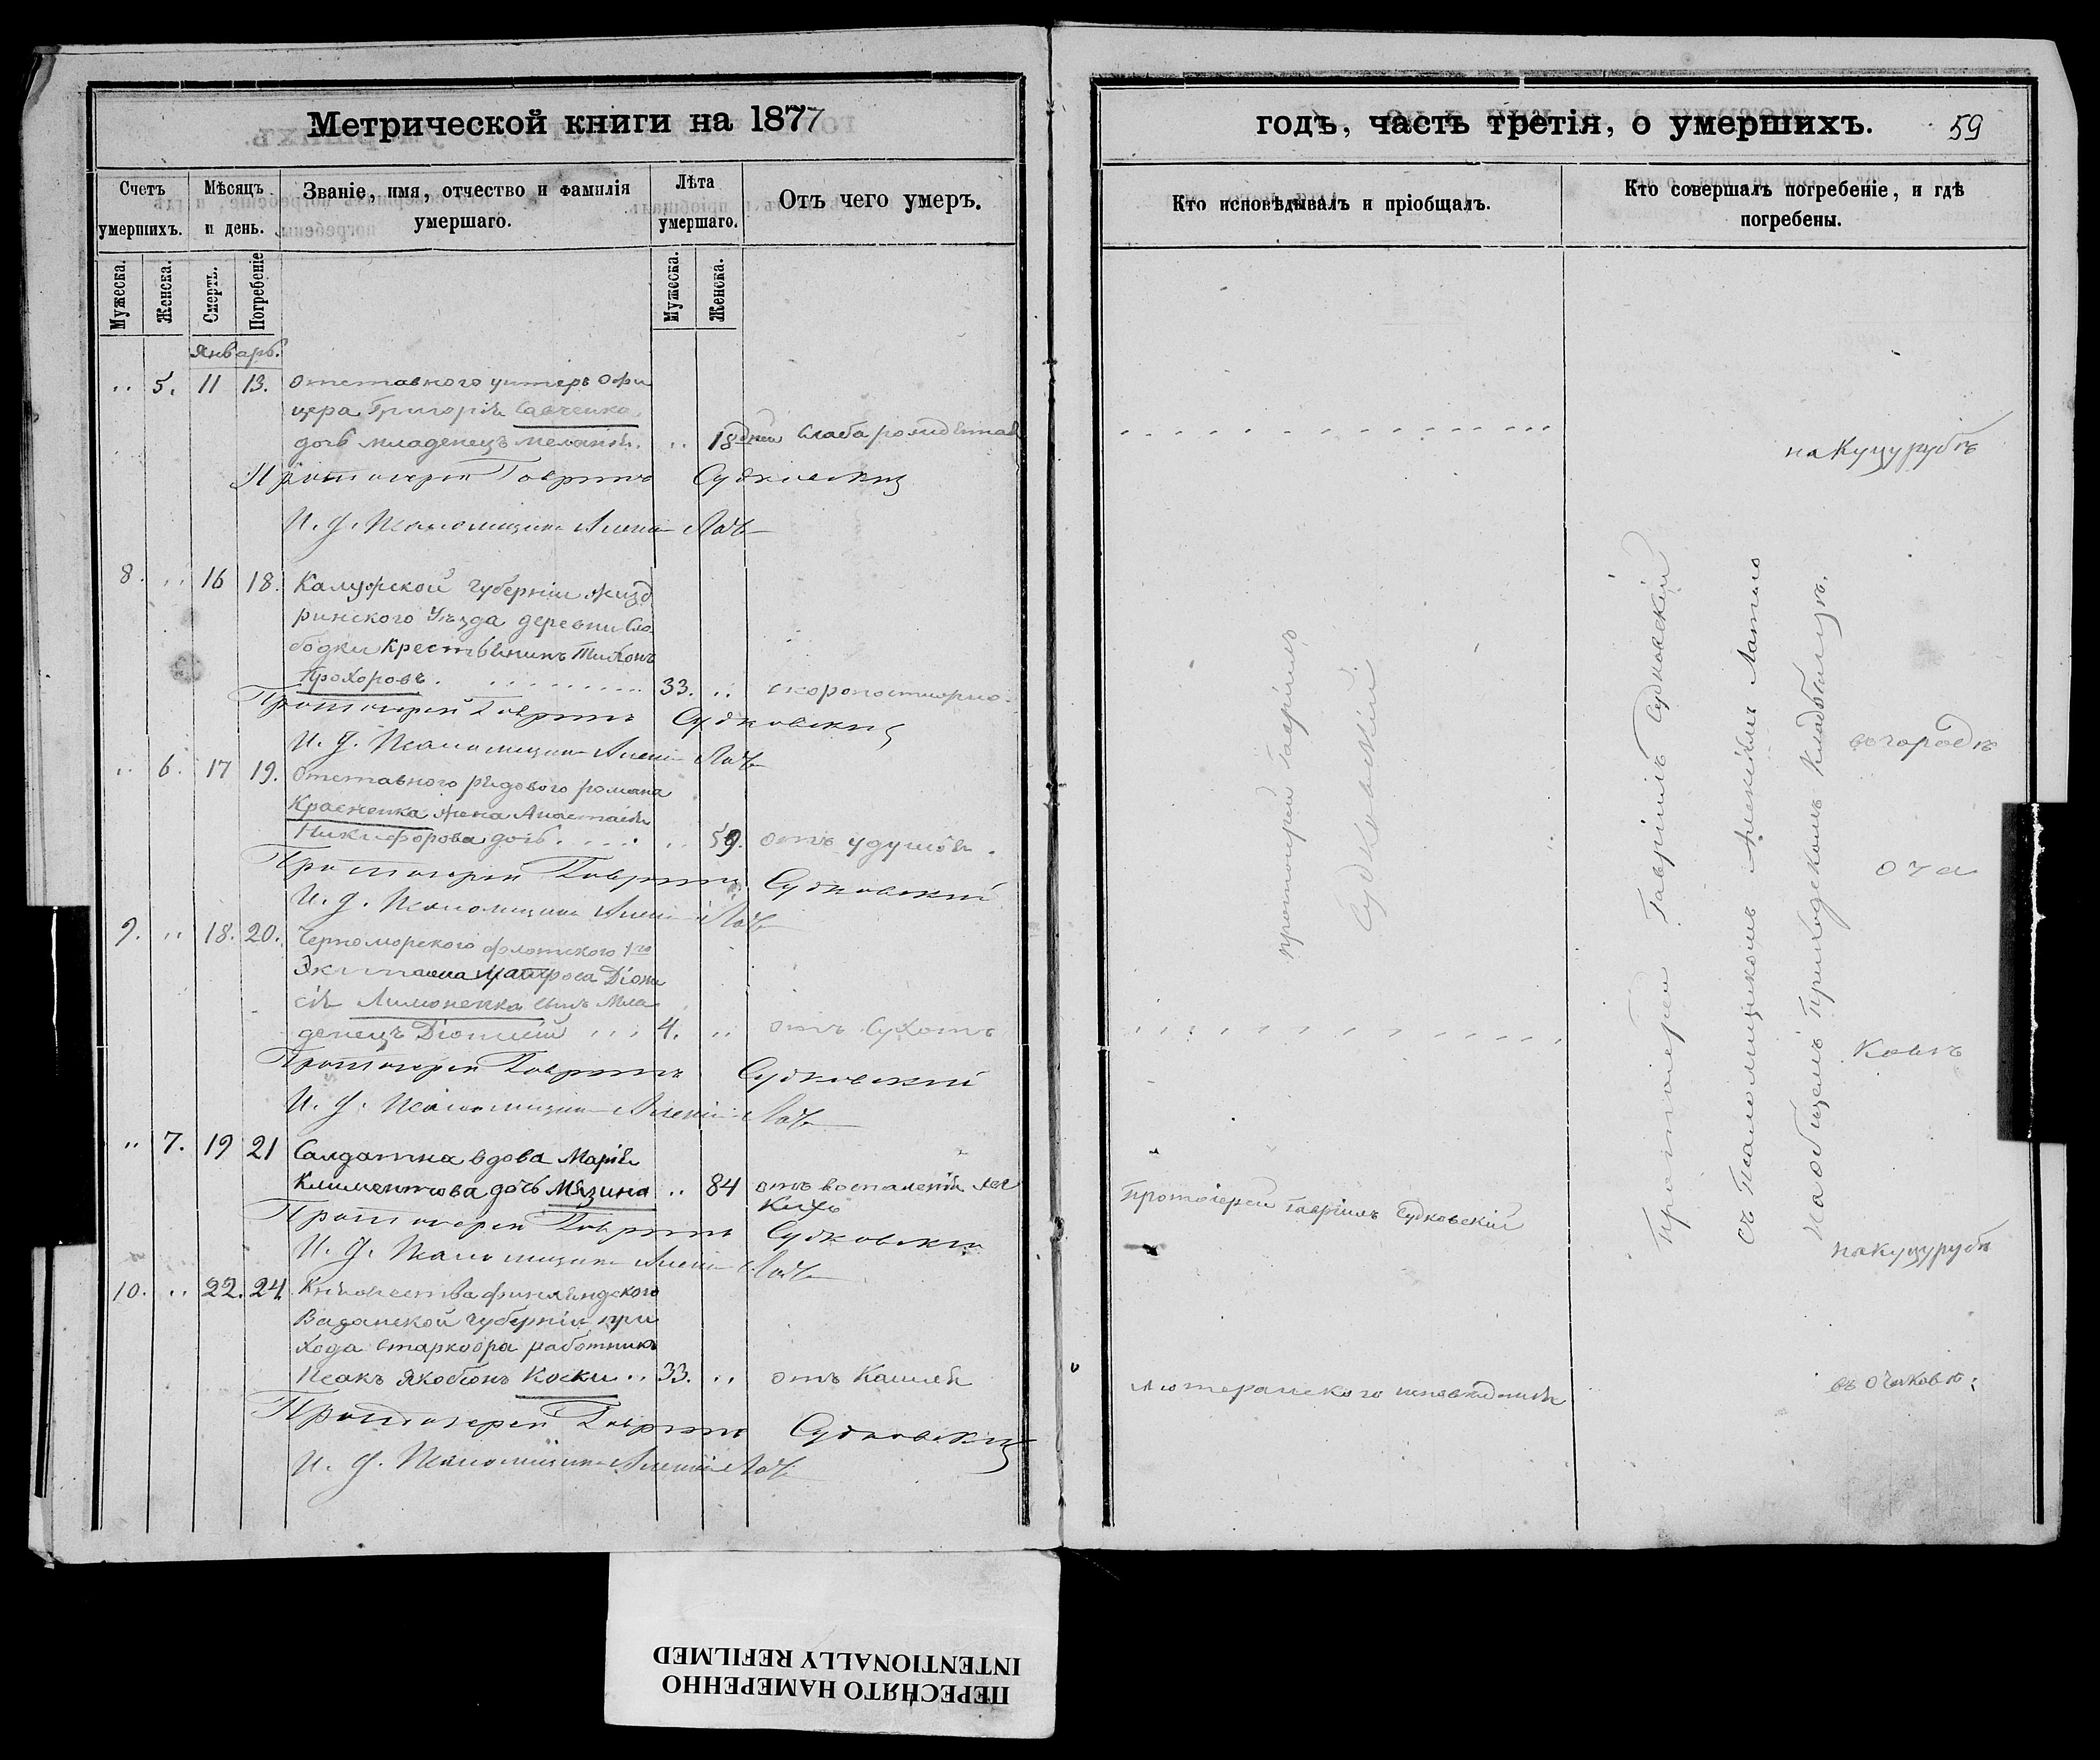 Метрической книги на 1877
Счетъ умершихъ.
Мѣсяцъ и день.
Званіе, имя, отчество и фамилія умершаго.
Лѣта умершаго.
Отъ чего умеръ.
Мужеска.
Женска.
Смерть.
Погребеніе
Мужеска.
Женска.
Январь.
.. 5. 11 13. отставного унтеръ офи
цера Григорія Савченка
дочь младенецъ Меланія. .. 18 дней слаба рожденная
Протоіерей Гавріилъ Судковскій
И. д. Псаломщика Алексій
8. .. 16 18. Калужской губерніи Жизд
ринского Уѣзда деревни Сло
бодки Крестьянинъ Тихонъ
Прохоровъ. 33. .. скоропостижно.
Протоіерей Гавріилъ Судковскій
И. д. Псаломщика Алексій
.. 6. 17 19. Отставного рядового романа
Красненка жена Анастасія
Никифорова дочь .. 59. отъ удушья.
Протоіерей Гавріилъ Судковскій
И. д. Псаломщика Алексій
9. .. 18. 20. Черноморского флотского 1го
Экипажа Матроса Діони
сія Лимоненка сынъ Мла
денецъ Діонисій 4. .. отъ Сухотъ
Протоіерей Гавріилъ Судковскій
И. д. Псаломщика Алексій
.. 7. 19 21 Салдатка вдова Марія
Климентова дочь Мязина .. 84 отъ воспаленія лег
кихъ
Протоіерей Гавріилъ Судковскій
И. д. Псаломщика Алексій
10. .. 22. 24. Княжества финляндского
губерніи при
хода работникъ
Исакъ Якобсонъ Коски .. 33. .. отъ Кашля
Протоіерей Гавріилъ Судковскій
И. д. Псаломщика Алексій
годъ, часть третія, о умершихъ.
59
Кто исповѣдывалъ и пріобщалъ.
Кто совершалъ погребеніе, и гдѣ погребены.
протоіерей Гавріилъ
Судковскій.
Протоіерей Гавріилъ Судковскій
Лютеранского исповѣданія
Протоіерей Гавріилъ Судковскій
съ Псаломщикомъ Алексіемъ
На общемъ Приходскомъ Кладбищѣ.
на Куцурубѣ
въ городѣ
Оча
ковѣ
на Куцурубѣ
въ Очаковѣ:
ПЕРЕСНЯТО НАМЕРЕННО
INTENTIONALLY REFILMED